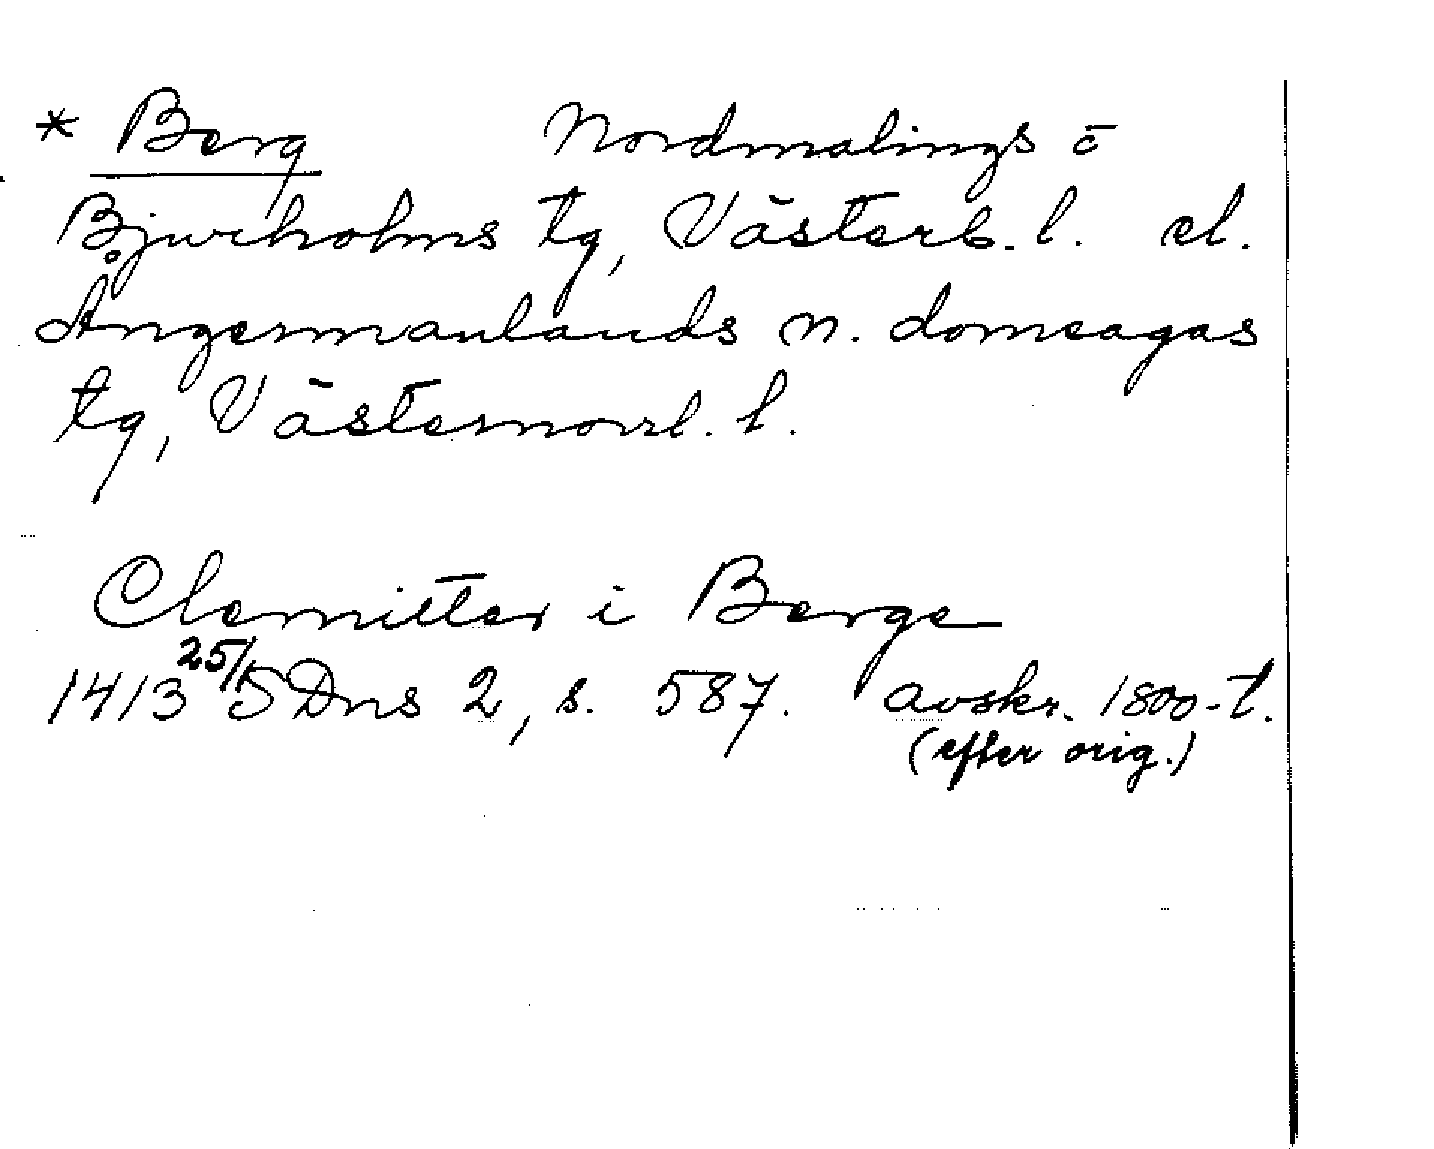 * Berg Nordmalings o
Bjurholms tg, Västerb. l. el.
Ångermanlands n. domsagas
tg, Västernorrl. l.
Clemitter i Berge
1413 25/5 SDns 2, s. 587. avskr. 1800-t.
(efter orig.)